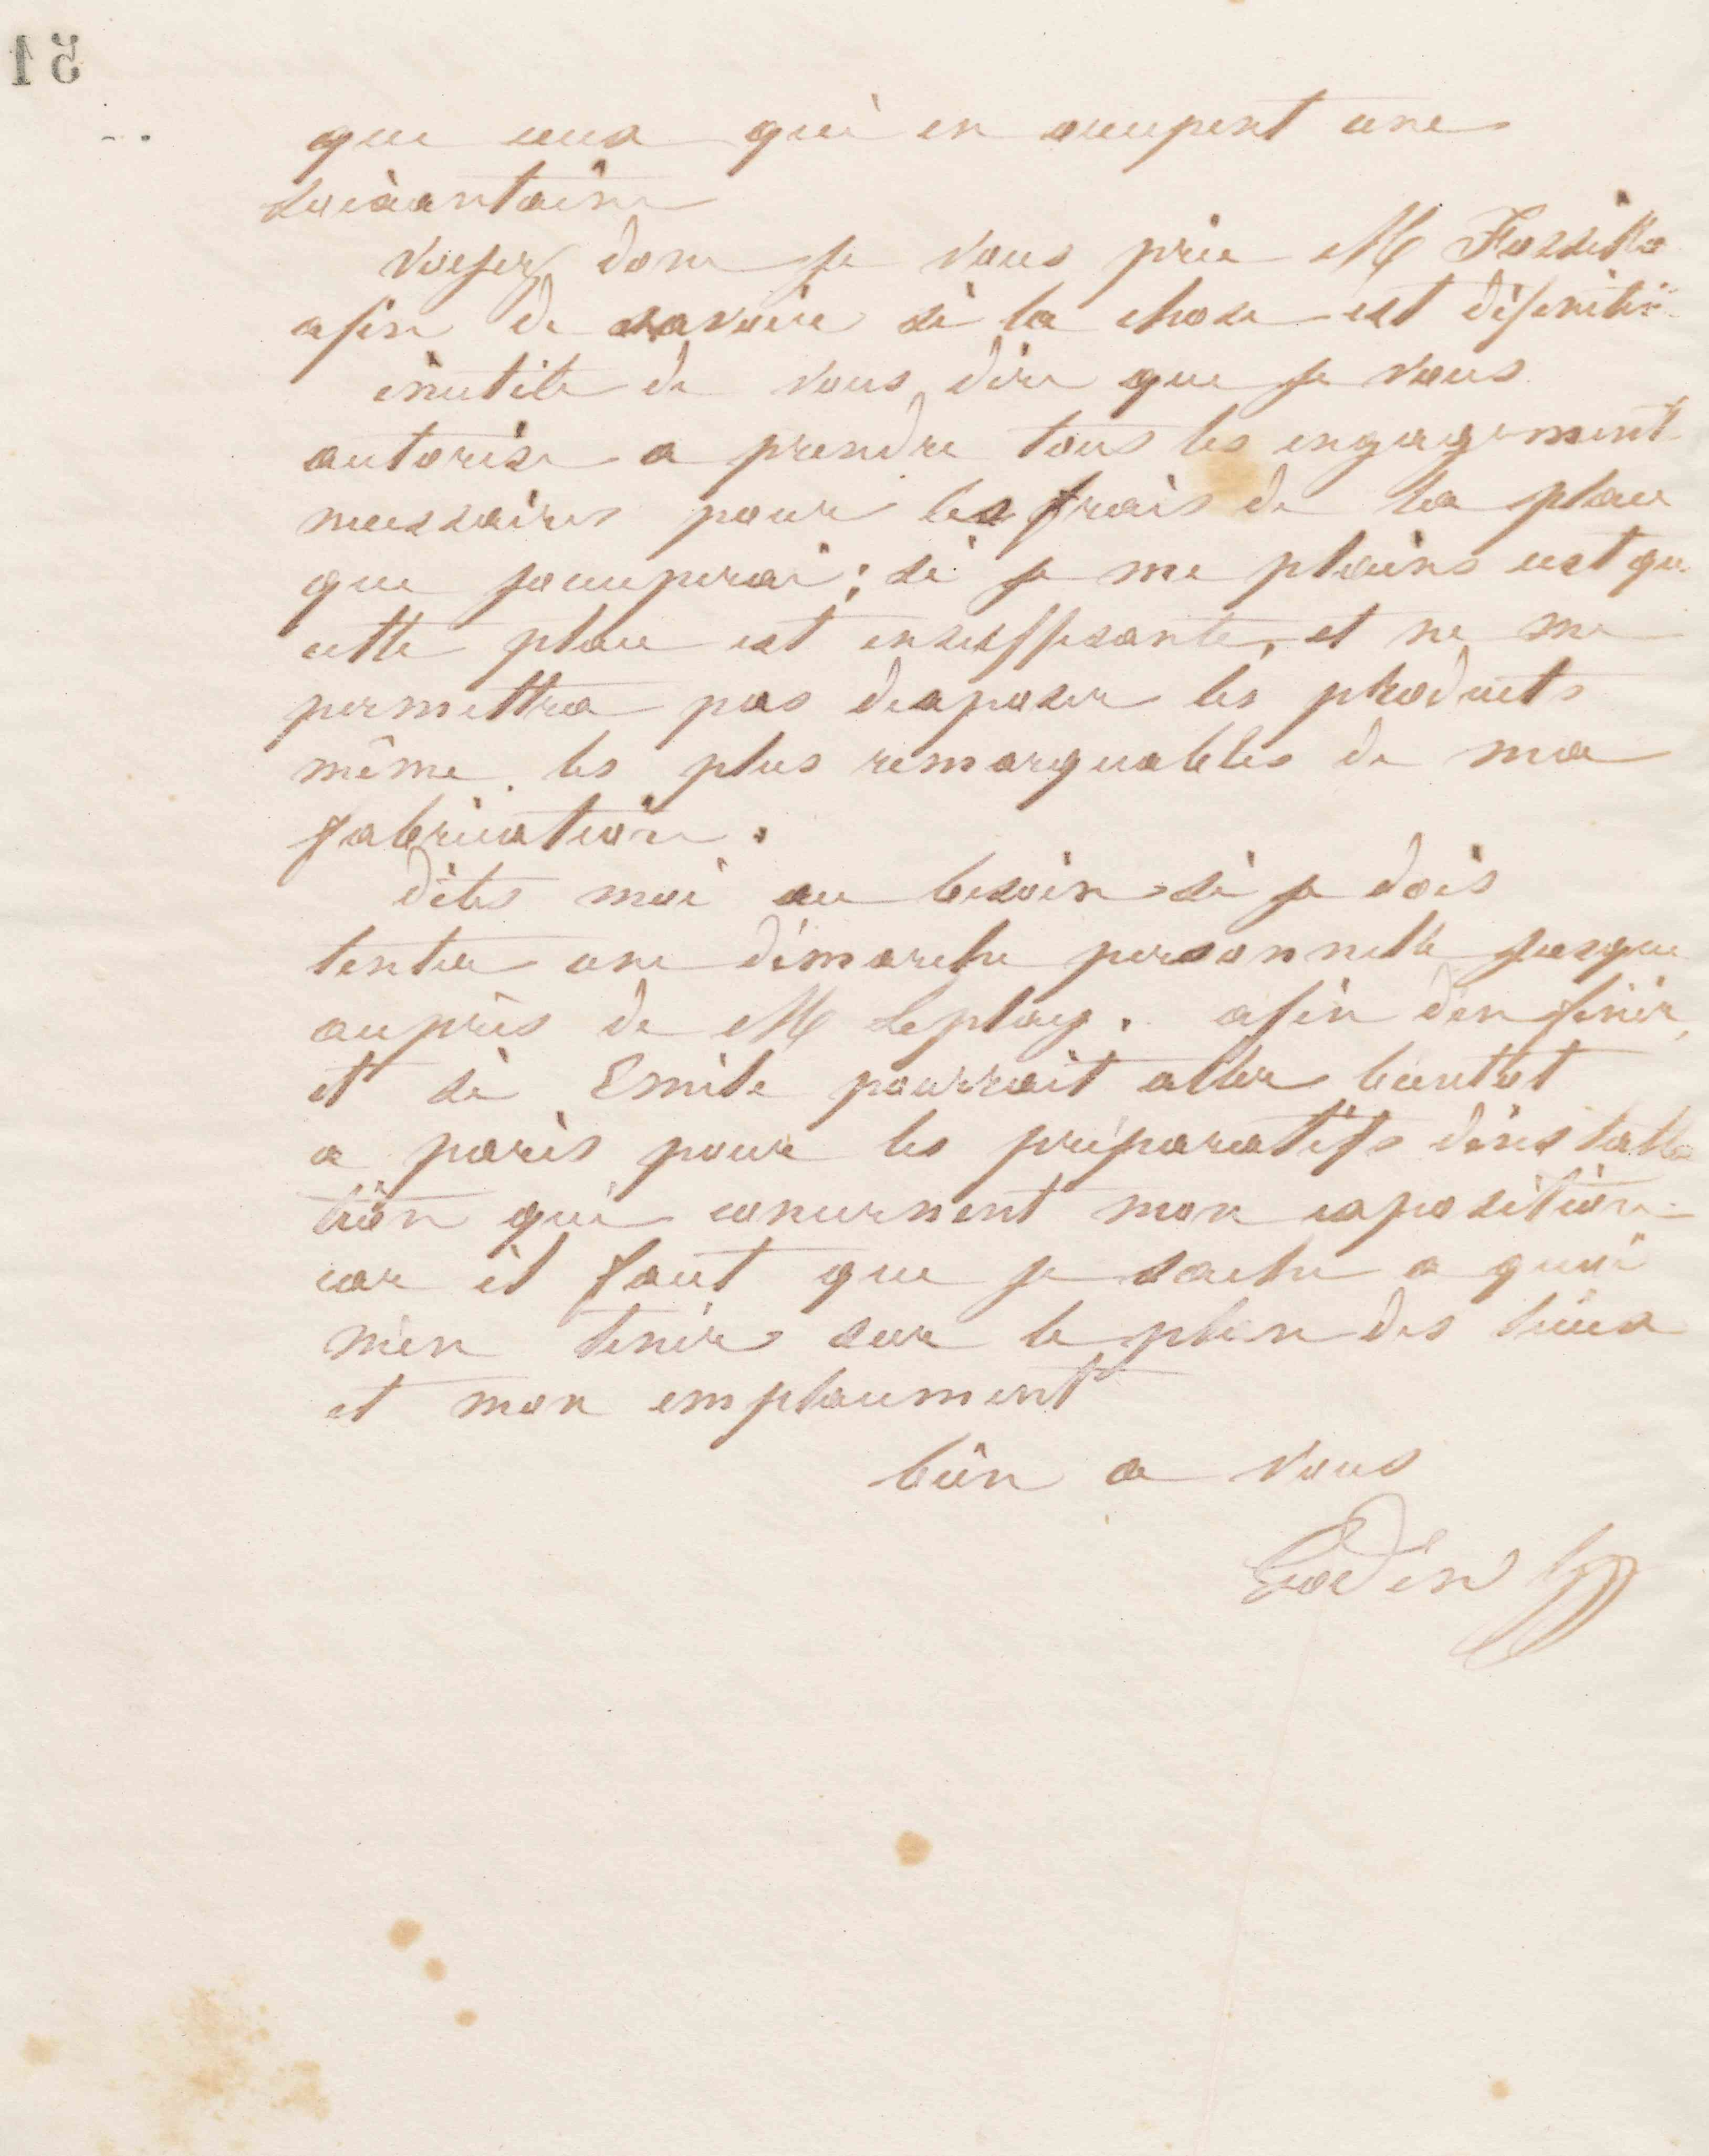 51
que ceux qui en occupent une
soixantaine
voyez donc je vous prie M
afin de savoir si la chose est définitive
inutile de vous dire que je vous
autorise a prendre tous les engagement
necessaires pour les frais de la place
que joccuperai ; si je me plains cest que
cette place est insuffisante, et ne me
permettra pas dexposer les produits
même les plus remarquables de ma
fabrication .
dites moi au besoin si je dois
tenter une démarche personnelle jusque
auprès de M Leplay . afin den finir,
et si Emile pourrait aller bientot
a paris pour les préparatifs dinstalla
tion qui concernent mon exposition
car il faut que je sache a quoi
men tenir sur le plan des lieux
et mon emplacement
bien a vous
Godin